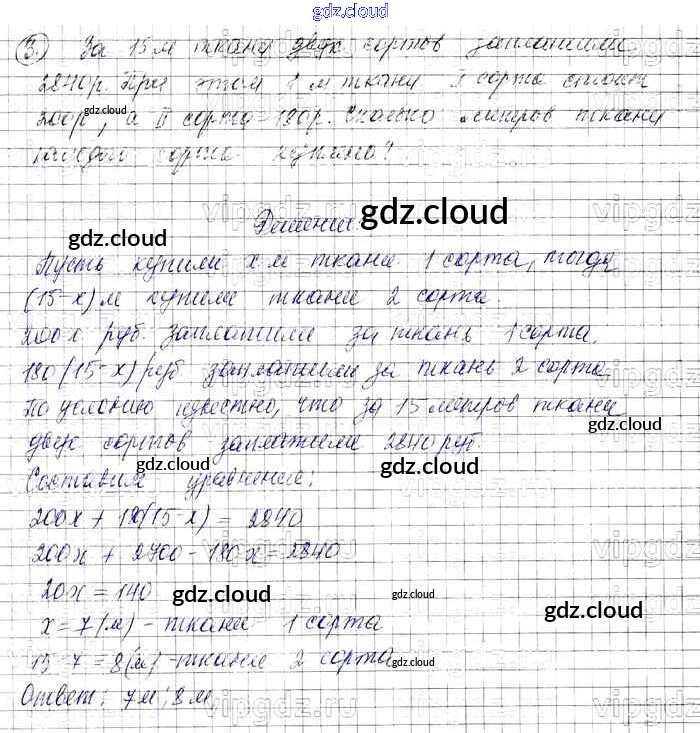 gdz.cloud
3. За 15 м ткани двух сортов заплатили
2840 р. При этом 1 м ткани I сорта стоит
200 р, а II сорта 180 р. Сколько метров ткани
каждого сорта куплено?
Решение
Пусть купили x м ткани 1 сорта, тогда
(15-x) м купили ткани 2 сорта.
200x руб. заплатили за ткань 1 сорта.
180(15-x) руб заплатили за ткань 2 сорта.
По условию известно, что за 15 метров ткани
двух сортов заплатили 2840 руб.
Составим уравнение:
200x + 180(15-x) = 2840
200x + 2700 - 180x = 2840
20x = 140
x = 7 (м) - ткани 1 сорта
15-7 = 8 (м) - ткани 2 сорта
Ответ: 7 м; 8 м